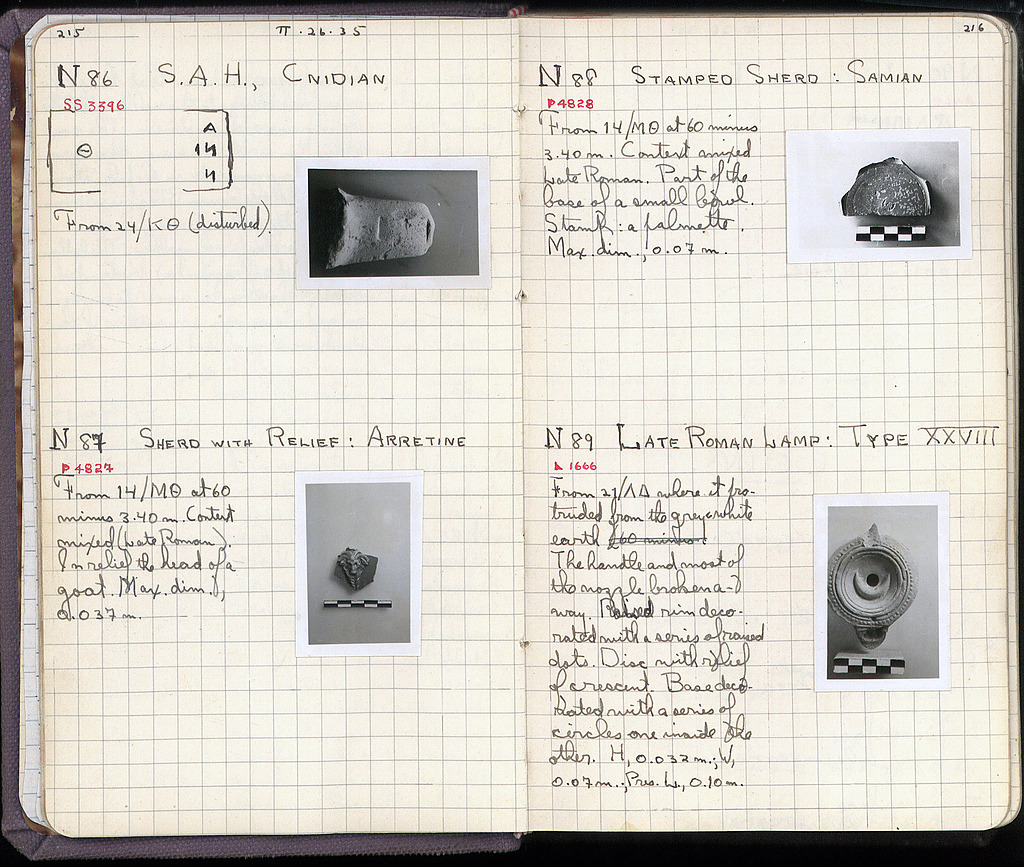 215
II · 26 · 35
N 86 S.A.H., CNIDIAN
SS 3396
A
Θ
From 24/ΚΘ (disturbed).
N 87 SHERD WITH RELIEF: ARRETINE
P 4827
From 14/ΜΘ at 60
minus 3.40 m. Context
mixed (Late Roman).
In relief the head of a
goat. Max. dim.,
0.037 m.
216
N 88 STAMPED SHERD: SAMIAN
P 4828
From 14/ΜΘ at 60 minus
3.40 m. Context mixed
Late Roman. Part of the
base of a small bowl.
Stamp: a palmette.
Max. dim., 0.07 m.
N 89 LATE ROMAN LAMP: TYPE XXVIII
L 1666
From 21/ΛΔ where it pro-
truded from the grey-white
earth (60 minus :
The handle and most of
the nozzle broken a-
way. Raised rim deco-
rated with a series of raised
dots. Disc with relief
of crescent. Base deco-
rated with a series of
circles one inside the
other. H, 0.032 m.; W,
0.07 m.; Pres. L., 0.10 m.